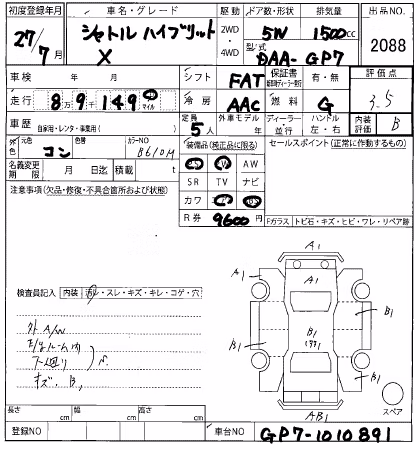 初度登録年月 車名・グレード 駆動 ドア数・形状 排気量 出品NO
27/7月 シャトル ハイブリット X 2WD・4WD 5W 1500cc 2088
型式 DAA-GP7
車検 年 月 シフト FAT 保証書 有・無 評価点
走行 8万9千149 マイル 冷房 AAC 燃料 G 3.5
車歴 自家用・レンタ・事業用( ) 定員 5人 外車モデル 年 ディーラー・並行 ハンドル 左・右 内装評価 B
外色 元色 コン 色替 カラーNO B610M 装備品(純正品に限る) セールスポイント(正常に作動するもの)
名義変更期限 月 日迄 積載 t PS PW AW
SR TV ナビ
注意事項(欠品・修復・不具合箇所および状態) カワ
R券 9600円 Fガラス トビ石・キズ・ヒビ・ワレ・リペア跡
A1
A1 A1
検査員記入 内装 ・スレ・キズ・キレ・コゲ・穴
外 A/W
下廻り
キズ. B1
B1 B1 B1
A1 A1
AB1
スペア
長さ cm 幅 cm 高さ cm
登録NO 車台NO GP7-1010891